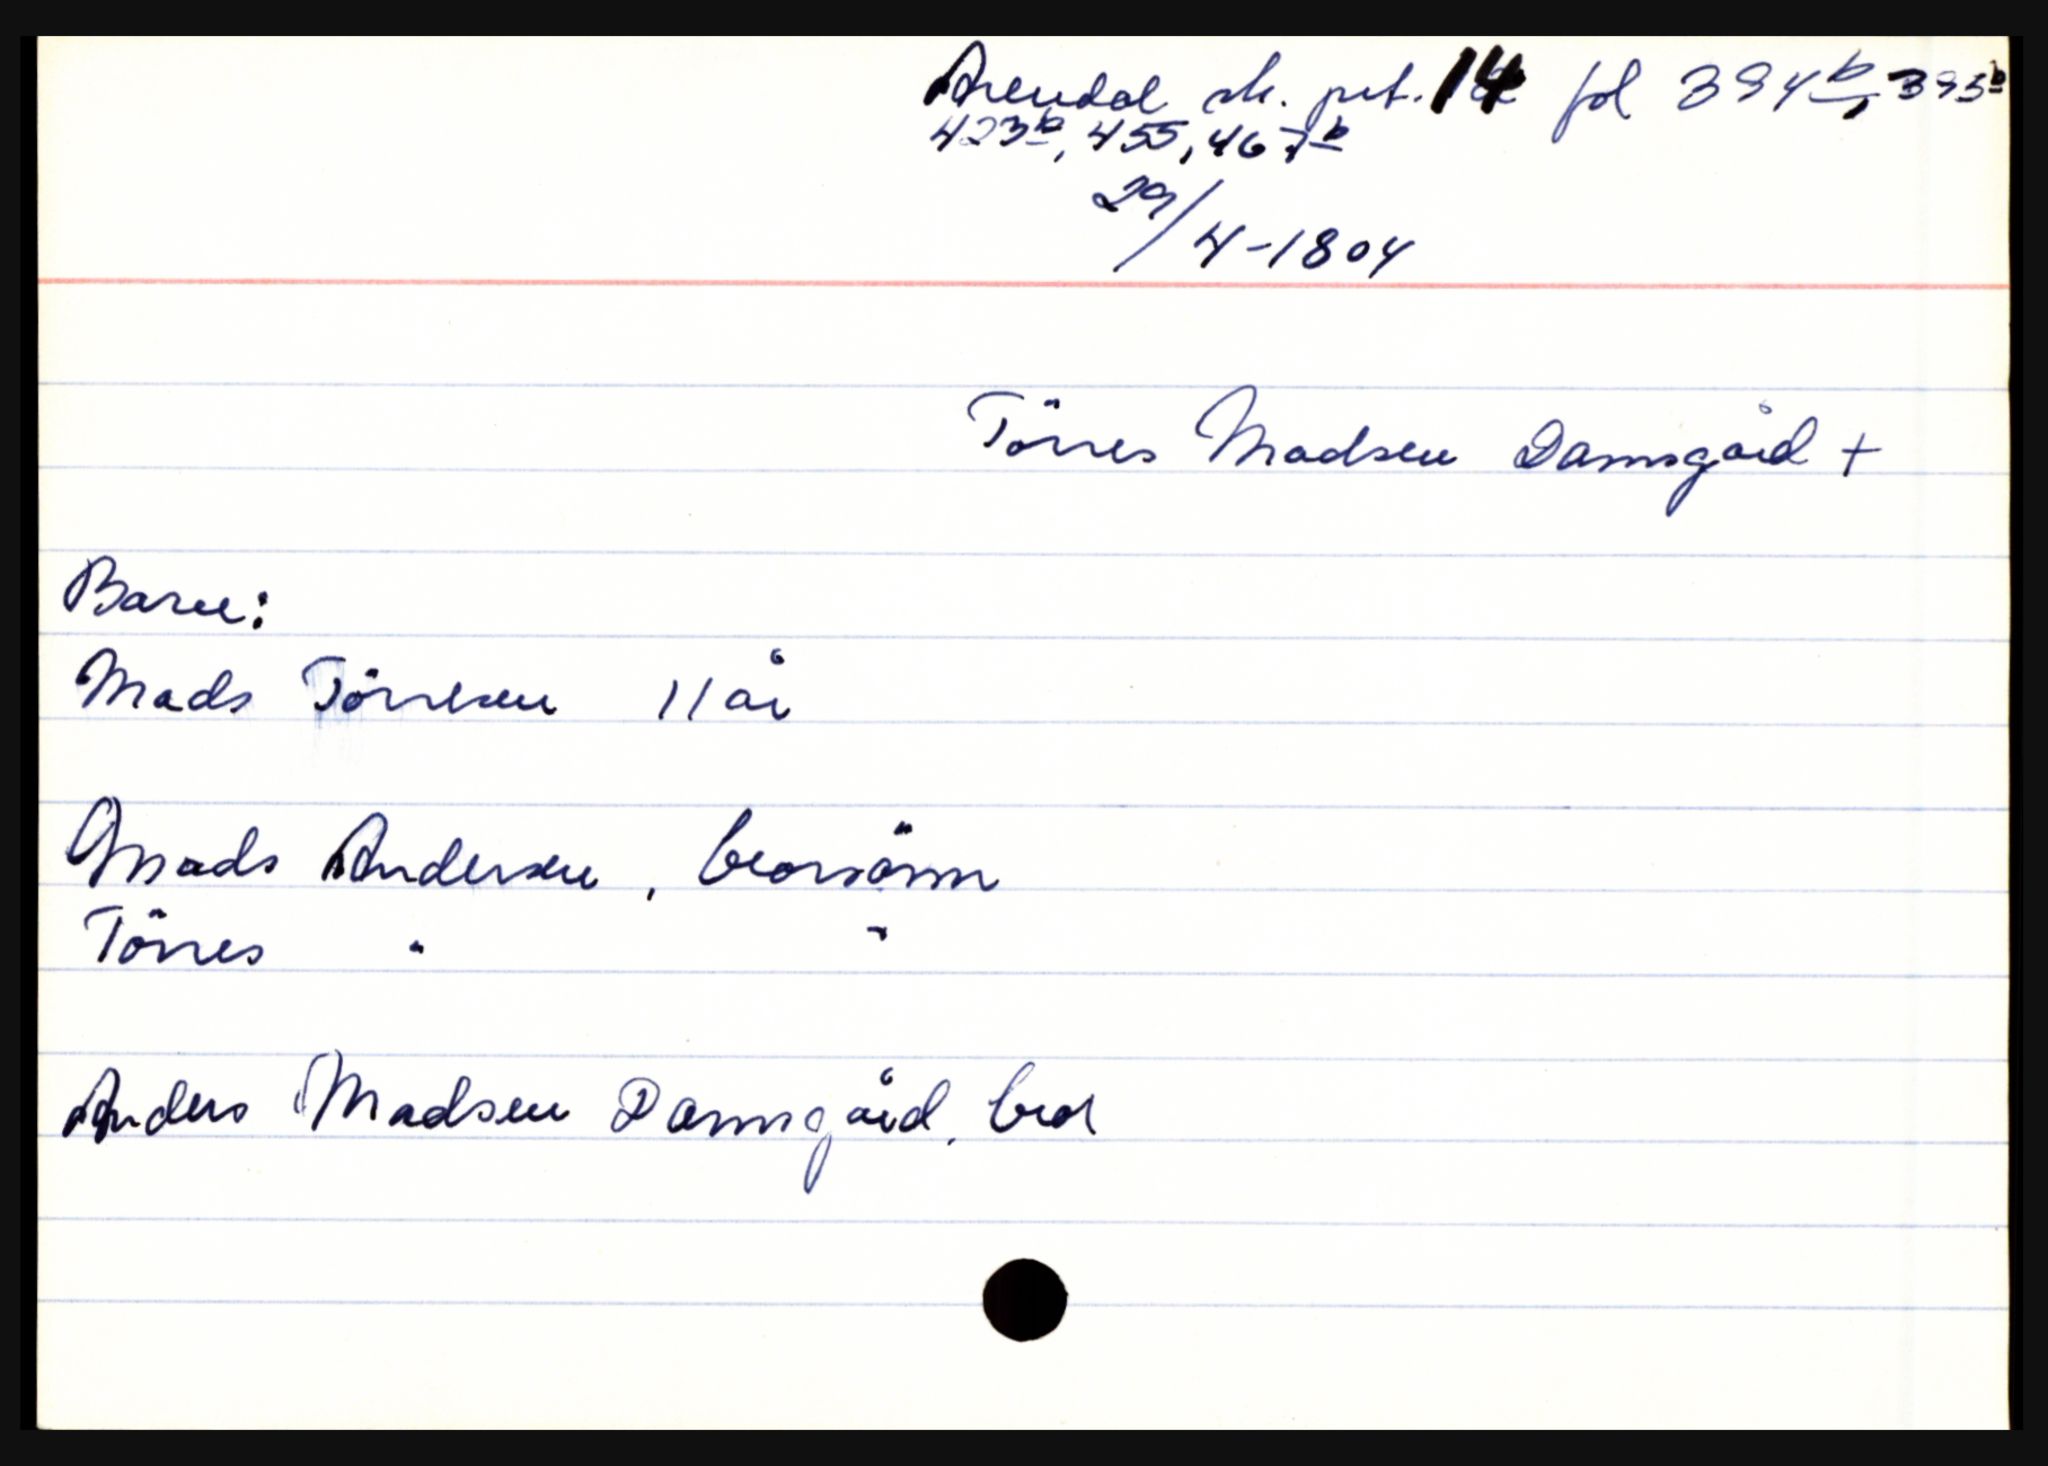 Arendal sk. prt. 14 fol 394b, 395b
423b, 455, 467b
29/4-1804
Törres Madsen Damsgård +
Barn:
Mads Törresen 11 år
Mads Andersen, brorsönn
Törres " "
Anders Madsen Damsgård, bror